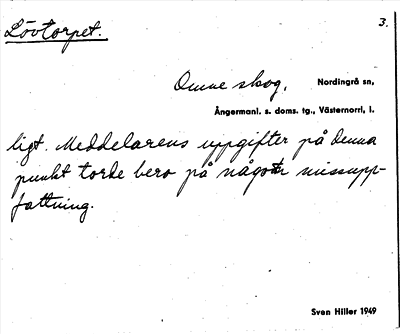 Lövtorpet.
3.
Omne skog, Nordingrå sn,
Ångermanl. s. doms. tg., Västernorrl, l.
ligt. Meddelarens uppgifter på denna
punkt torde bero på något missupp-
fattning.
Sven Hiller 1949